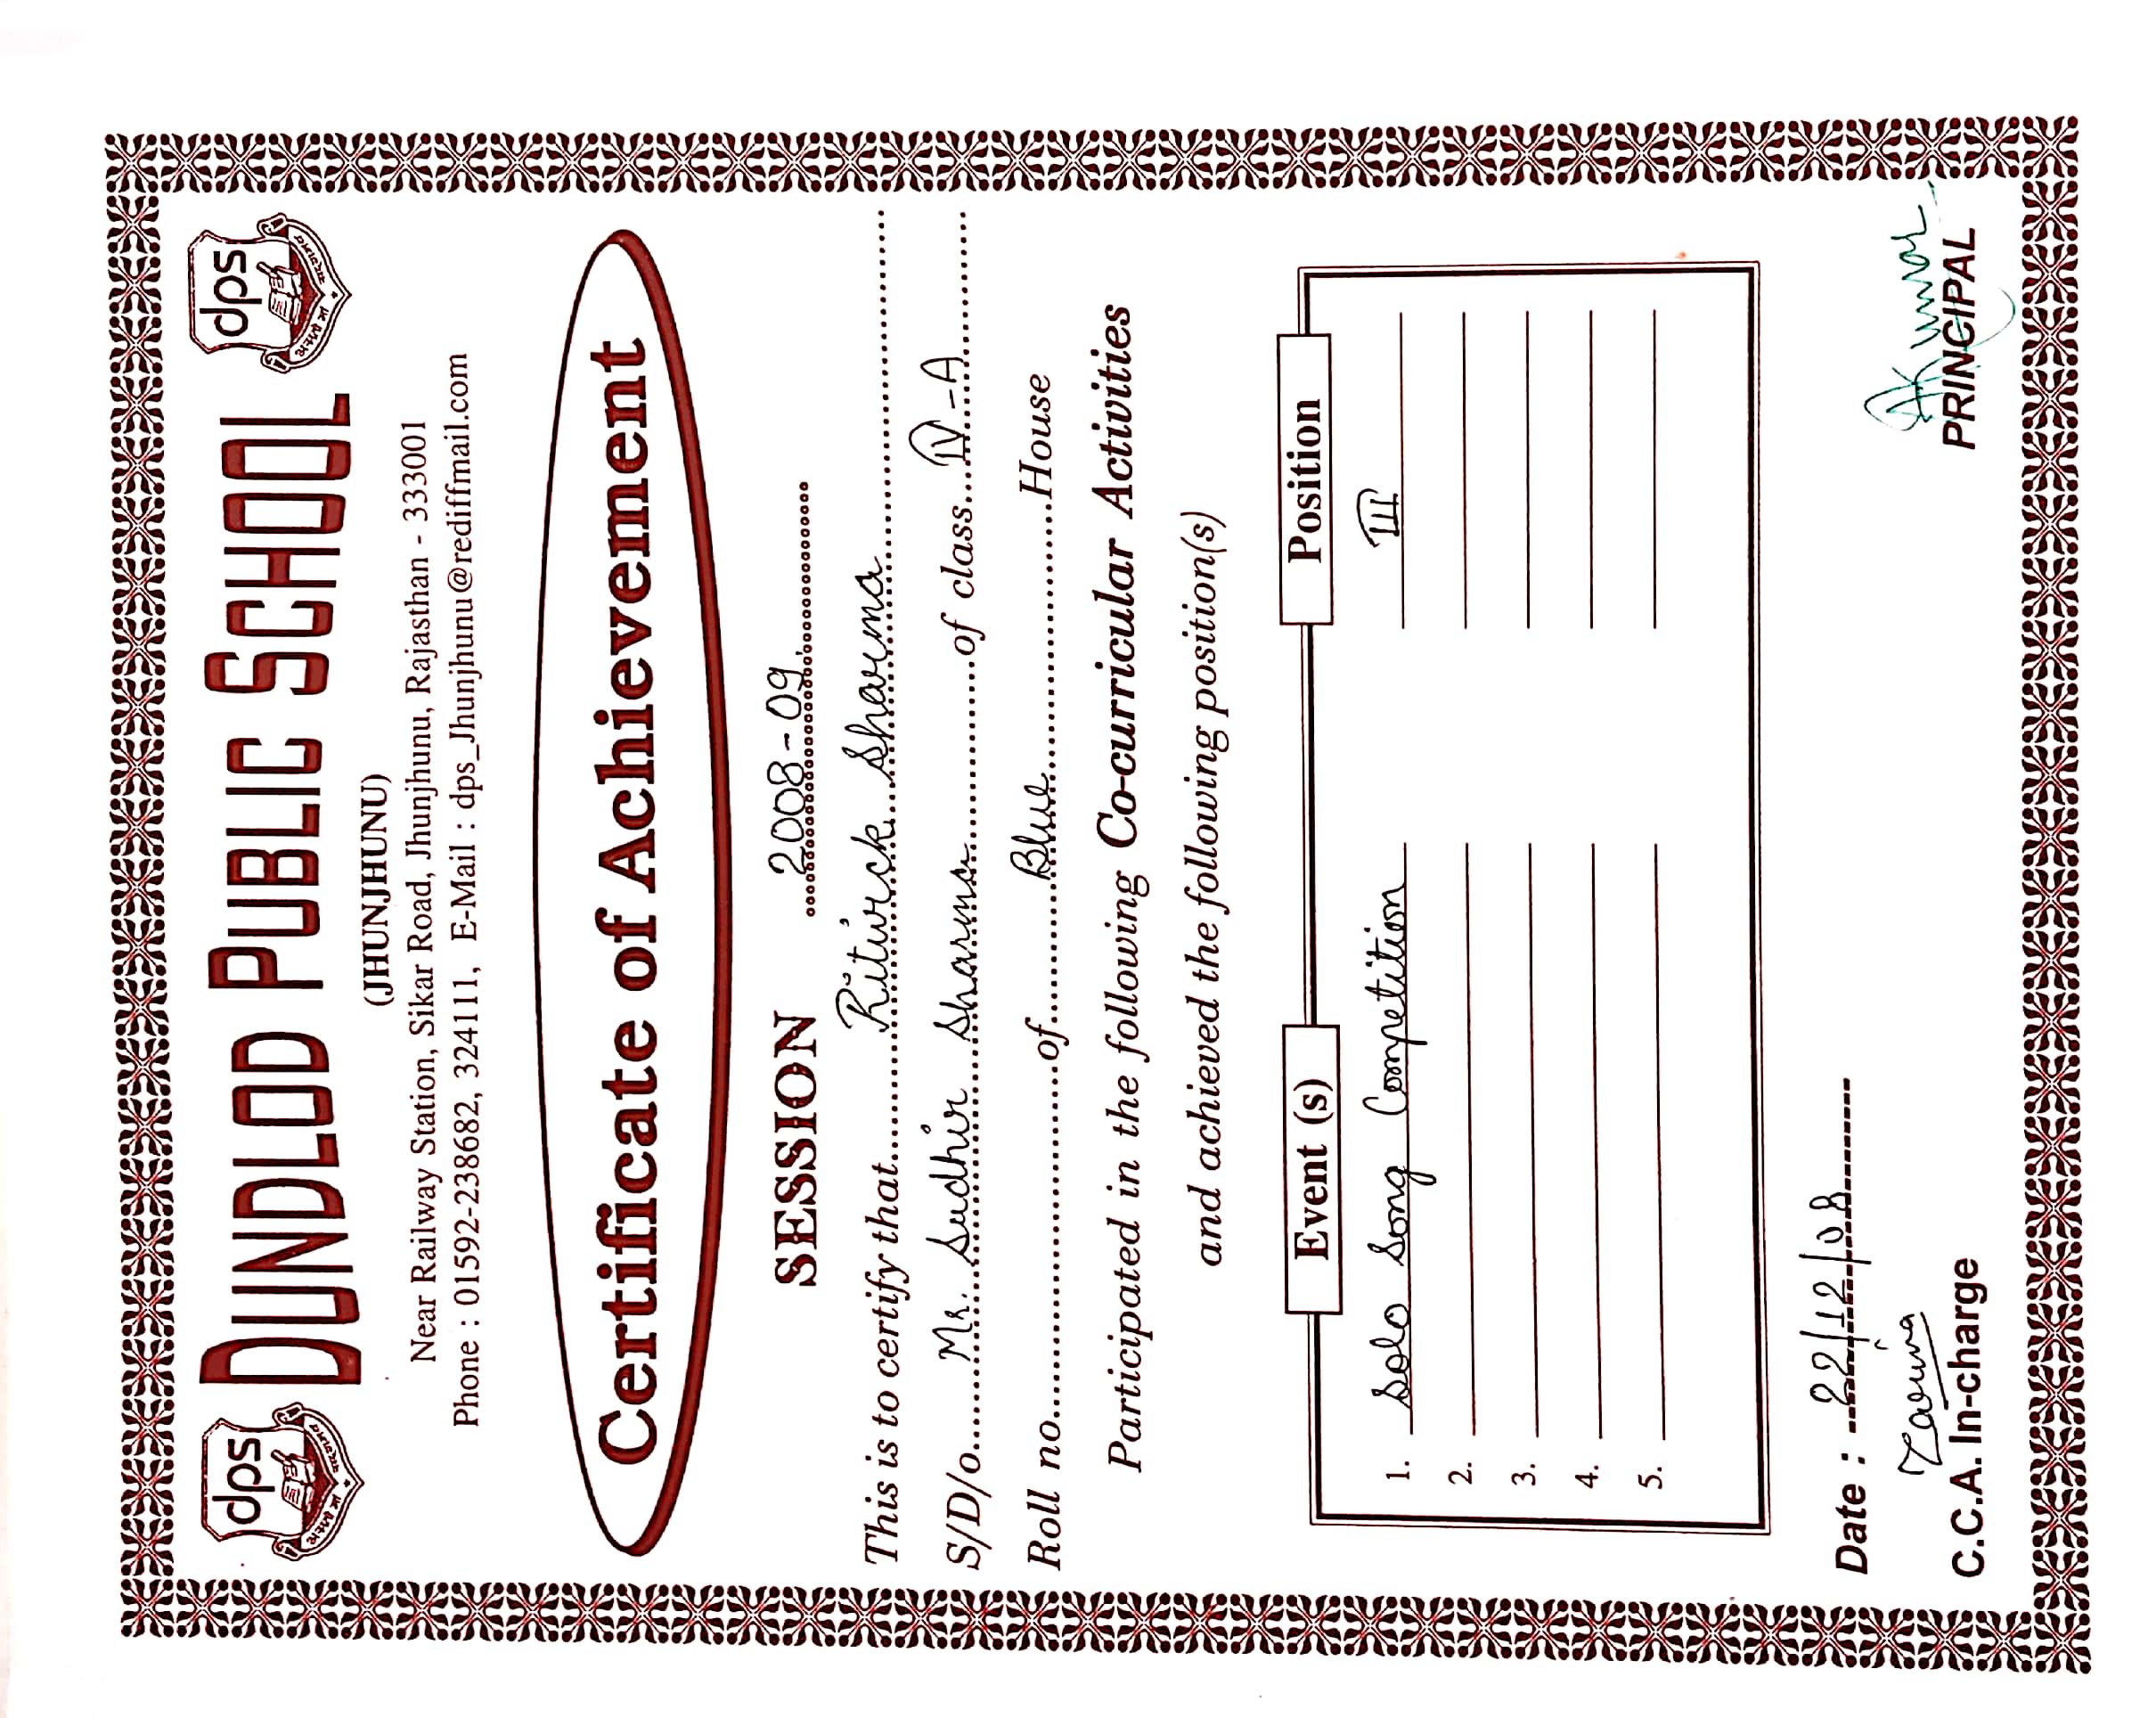 dps
DUNDLOD PUBLIC SCHOOL
dps
(JHUNJHUNU)
Near Railway Station, Sikar Road, Jhunjhunu, Rajasthan - 333001
Phone : 01592-238682, 324111, E-Mail : dps_Jhunjhunu@rediffmail.com
Certificate of Achievement
SESSION 2008-09
This is to certify that Ritwick Sharma
S/D/o Mr. Sudhir Sharma of class IV-A
Roll no. of Blue House
Participated in the following Co-curricular Activities
and achieved the following position(s)
Event (s) Position
1. Solo Song Competition III
2.
3.
4.
5.
Date : 22/12/08
C.C.A. In-charge PRINCIPAL